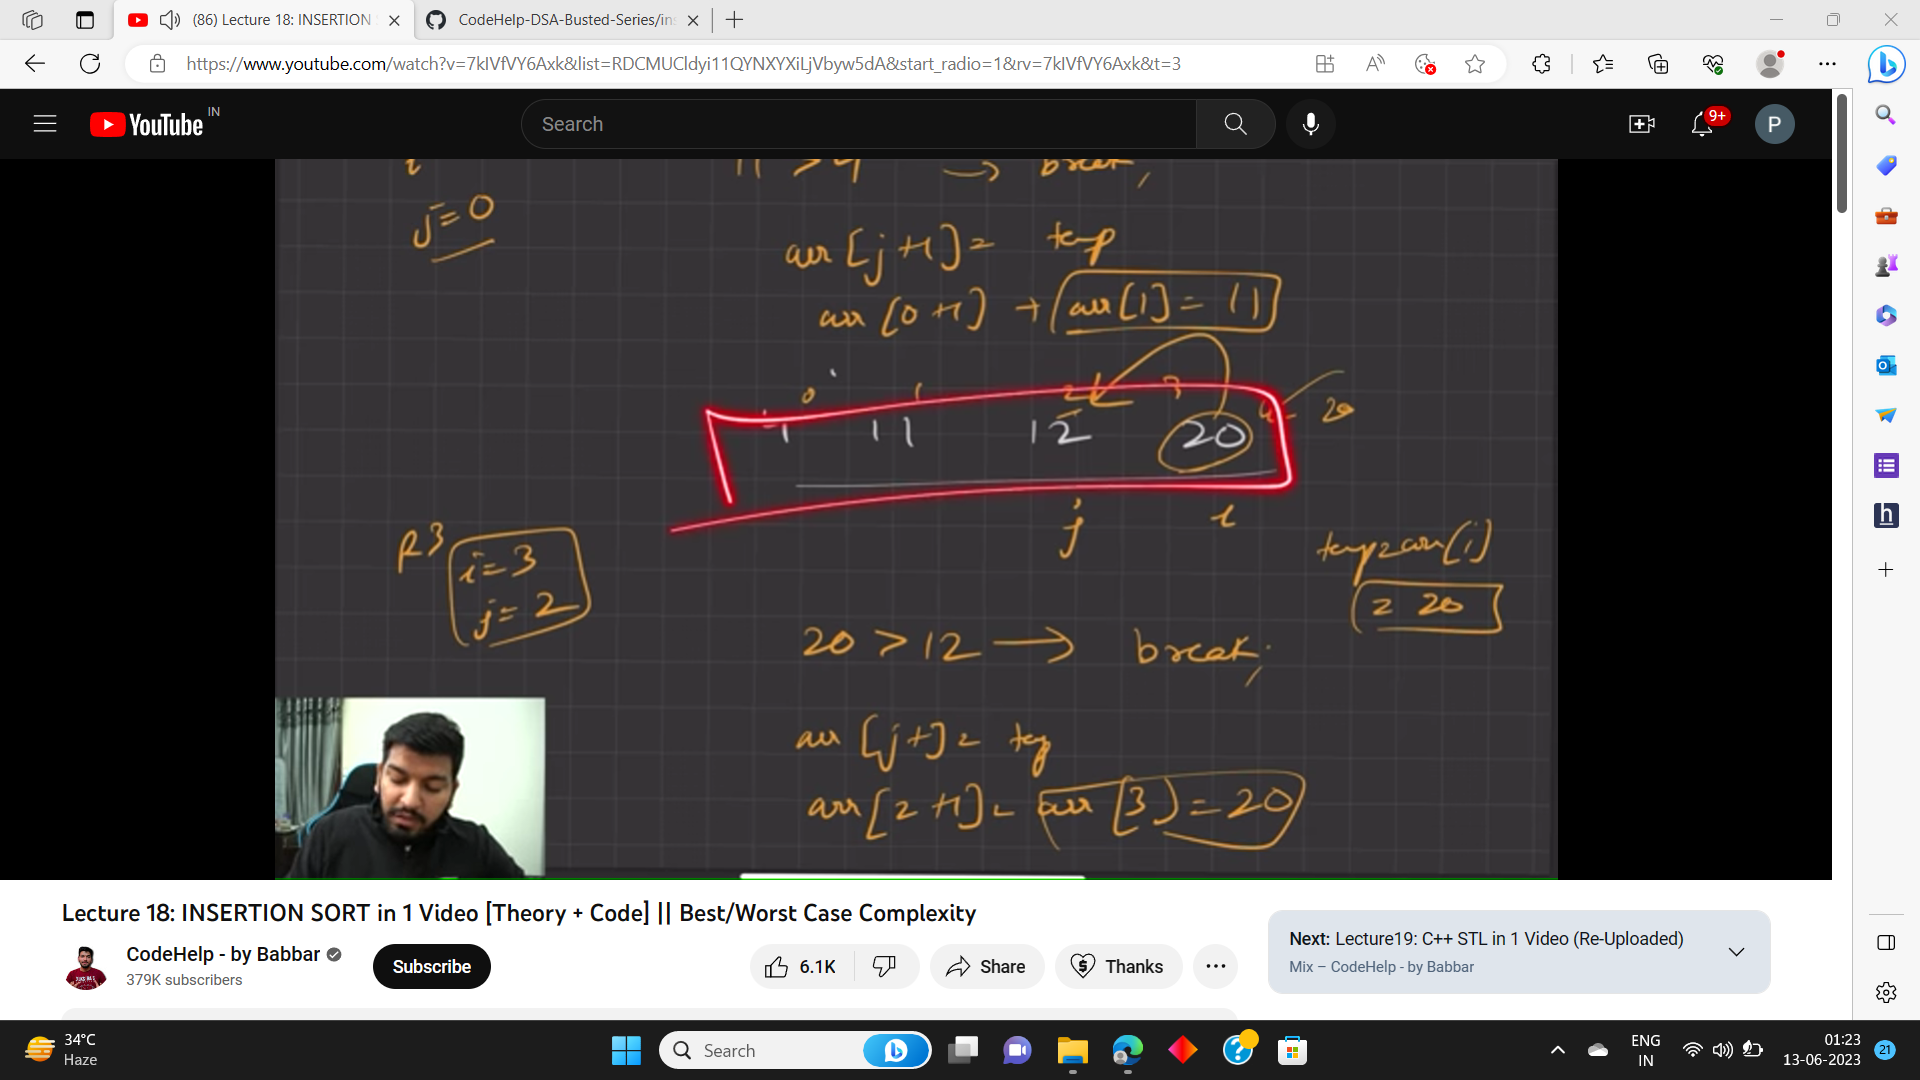 (86) Lecture 18: INSERTION
CodeHelp-DSA-Busted-Series/in
https://www.youtube.com/watch?v=7kIVfVY6Axk&list=RDCMUCldyi11QYNXYXiLjVbyw5dA&start_radio=1&rv=7kIVfVY6Axk&t=3
YouTube IN
Search
9+
P
i 11 > 4 → break;
j=0
arr [j+1] = temp
arr [0+1] → arr[1] = 11
0 1 2 3 4 - 20
11 12 20
j i
R3
i=3
j=2
temp=arr[i]
= 20
20 > 12 → break;
arr [j+1] = temp
arr [2+1] = arr [3] = 20
Lecture 18: INSERTION SORT in 1 Video [Theory + Code] || Best/Worst Case Complexity
CodeHelp - by Babbar
379K subscribers
Subscribe
6.1K
Share
Thanks
Next: Lecture19: C++ STL in 1 Video (Re-Uploaded)
Mix – CodeHelp - by Babbar
34°C
Haze
Search
ENG
IN
01:23
13-06-2023
21